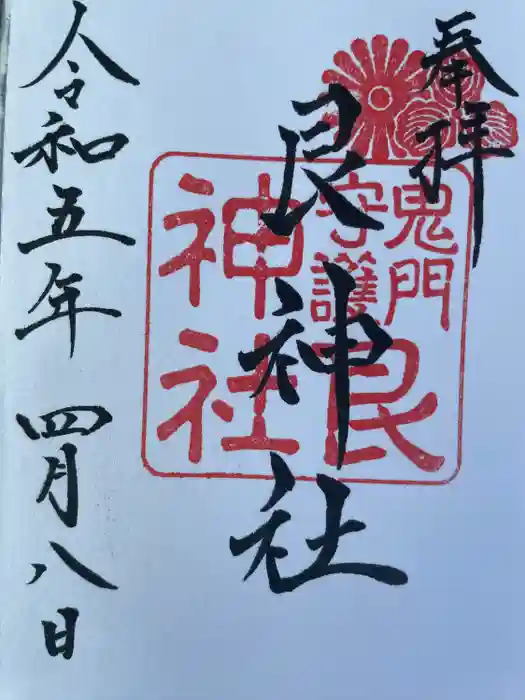 奉拝
艮神社
鬼門
守護
艮
神社
令和五年 四月八日